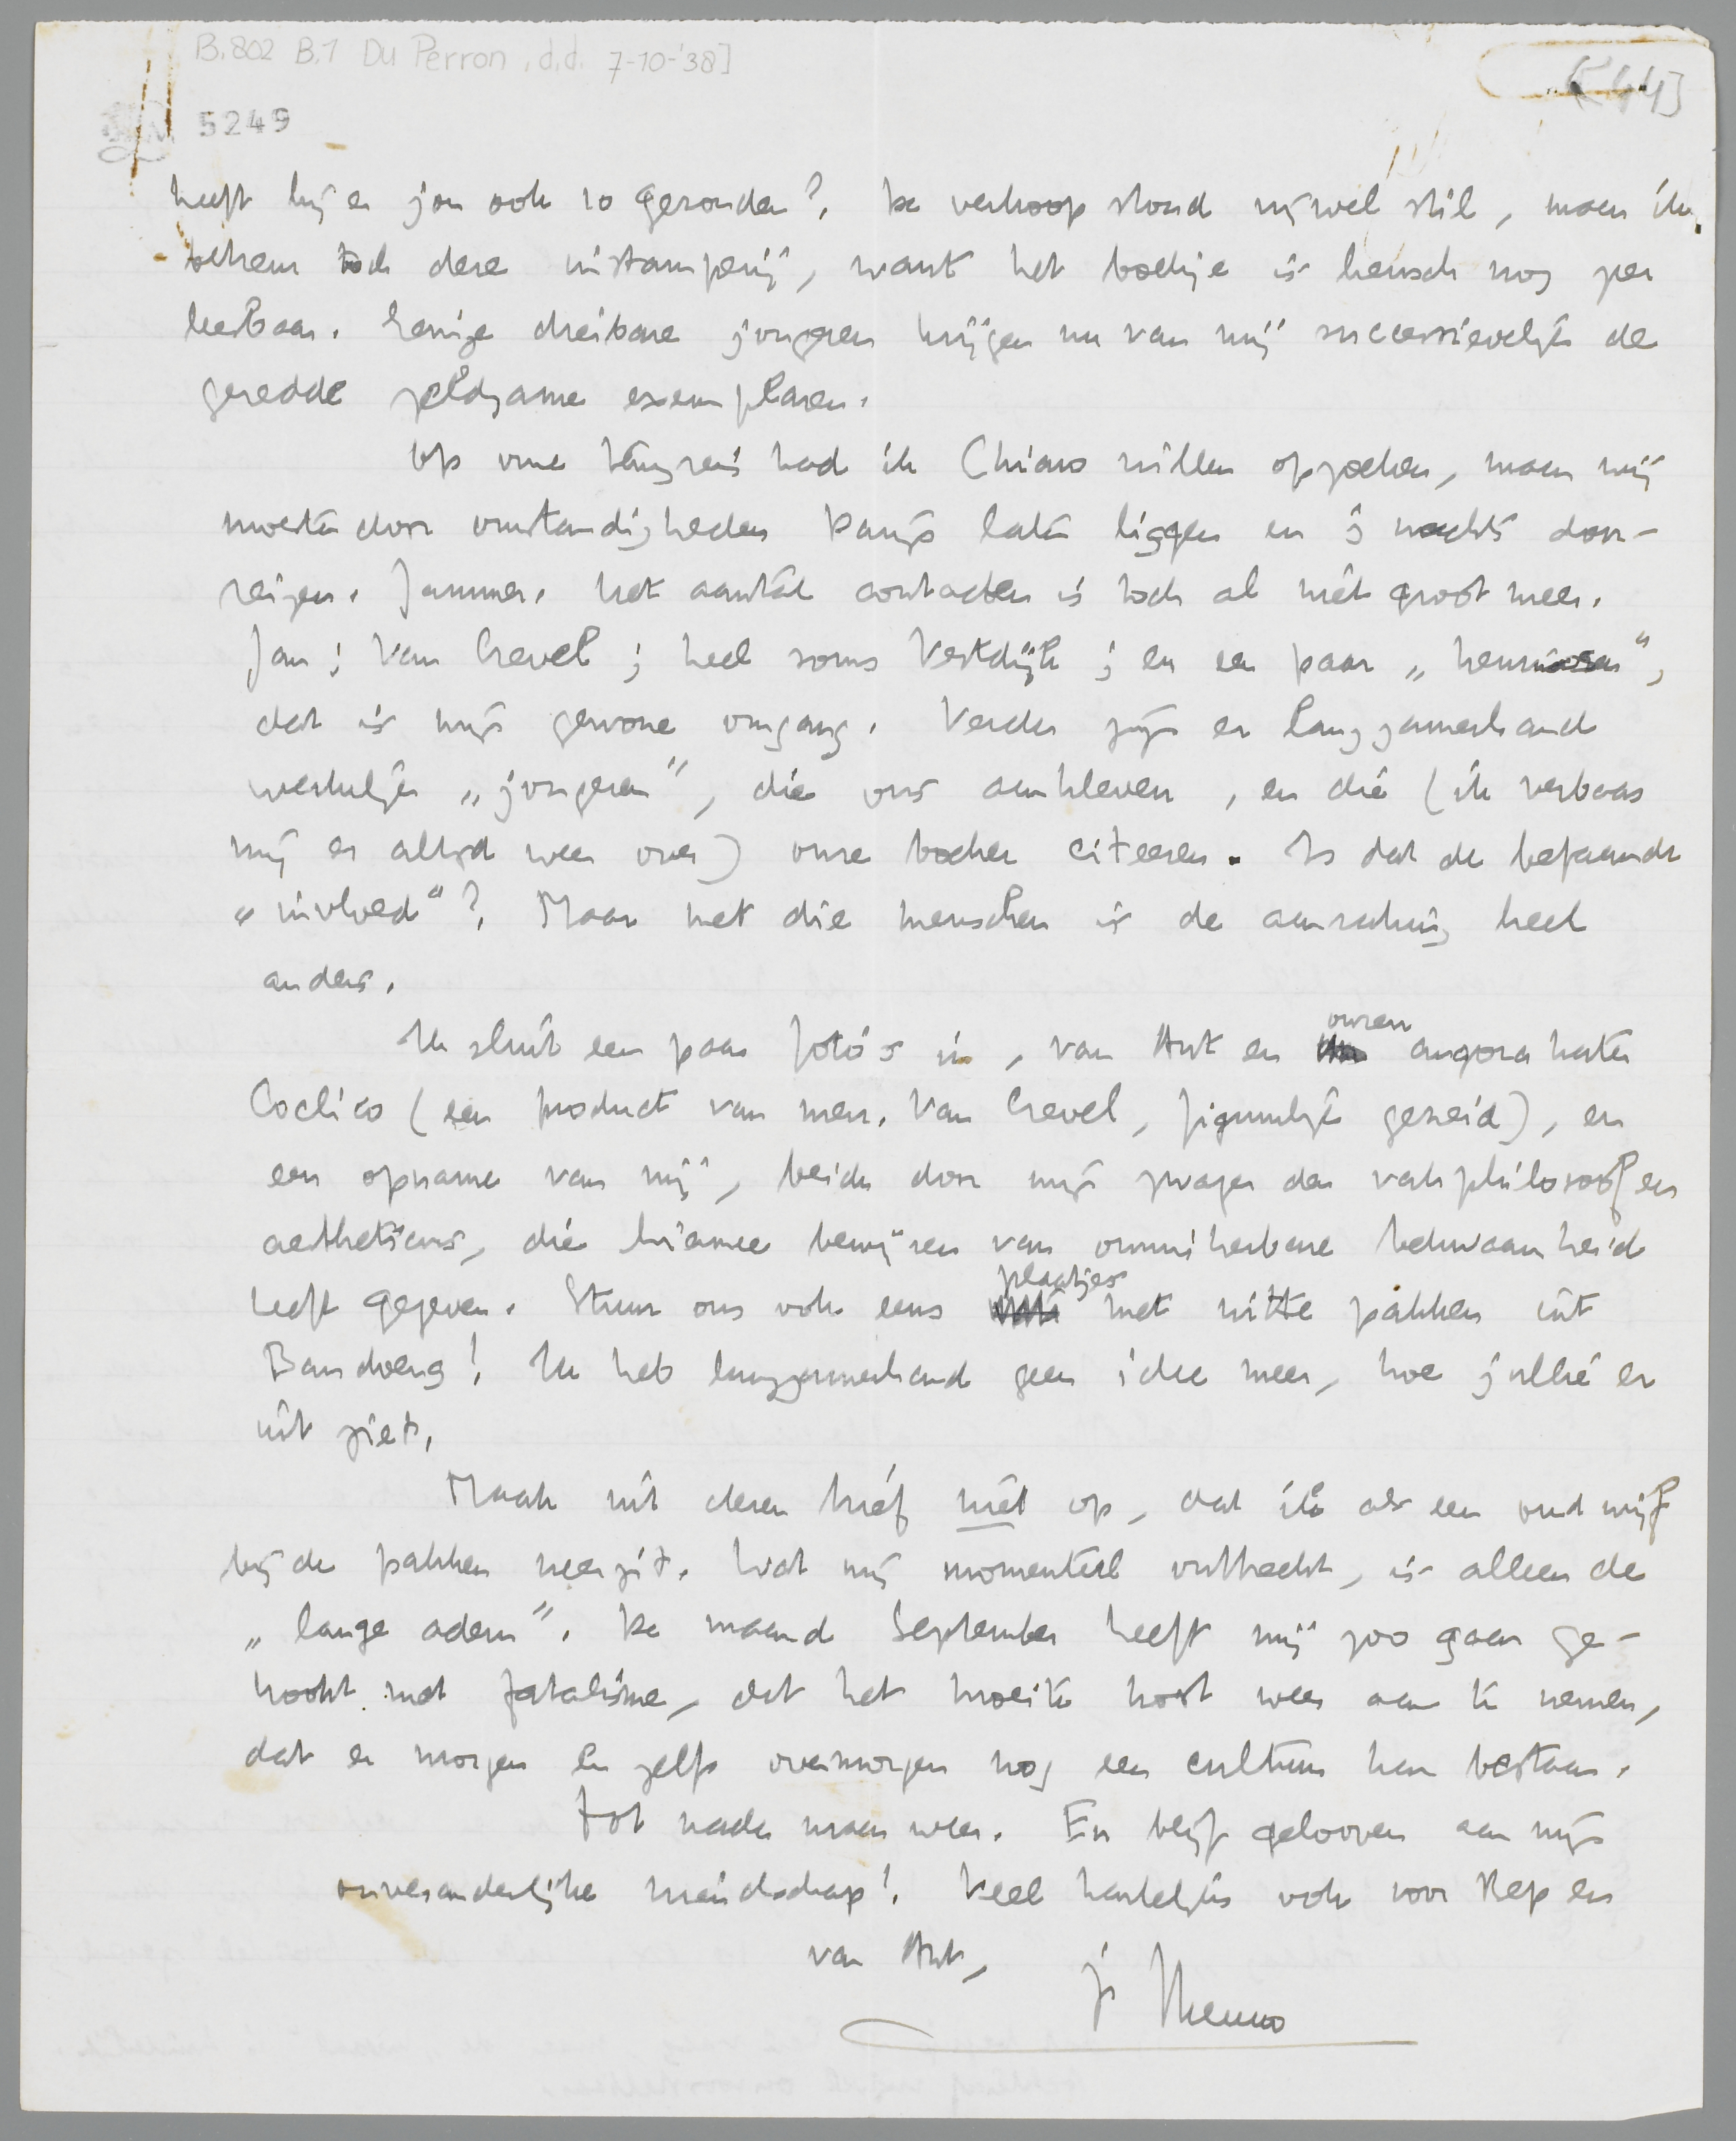 B.802 B.1 Du Perron, d.d. 7-10-'38]
[44]
5249
heeft hij er jou ook 10 gezonden? De verkoop stond vrijwel stil, maar ik
betreur toch deze instamperij, want het boekje is heusch nog zeer
leesbaar. Eenige dierbare jongeren krijgen nu van mij successievelijk de
geredde zeldzame exemplaren.
Op onze terugreis had ik Chiaro willen opzoeken, maar wij
moesten door omstandigheden Parijs laten liggen en 's nachts door-
reizen. Jammer. Het aantal contacten is toch al niet groot meer.
Jan; Van Crevel; heel soms Vestdijk; en een paar „
dat is mijn gewone omgang. Verder zijn er langzamerhand
werkelijk „jongeren", die ons aankleven, en die (ik verbaas
mij er altijd weer over) onze boeken citeeren. Is dat de befaamde
„invloed"? Maar met die menschen is de aanraking heel
anders.
Ik sluit een paar foto's in, van Ant en onzen angora kater
Coclico (een product van mevr. Van Crevel, figuurlijk gezeid), en
een opname van mij, beide door mijn zwager den vakphilosoof en
aestheticus, die hiermee bewijzen van onmiskenbare bekwaamheid
heeft gegeven. Stuur ons ook eens plaatjes met witte pakken uit
Bandoeng! Ik heb langzamerhand geen idee meer, hoe jullie er
uit ziet.
Maak uit dezen brief niet op, dat ik als een oud wijf
bij de pakken neerzit. Wat mij momenteel ontbreekt, is alleen de
„lange adem". De maand September heeft mij zoo gaar ge-
kookt met fatalisme, dat het moeite kost weer aan te nemen,
dat er morgen en zelfs overmorgen nog een cultuur kan bestaan.
Tot nader maar weer. En blijf gelooven aan mijn
onveranderlijke vriendschap! Veel hartelijks ook voor Bep en
van Ant,
je Menno